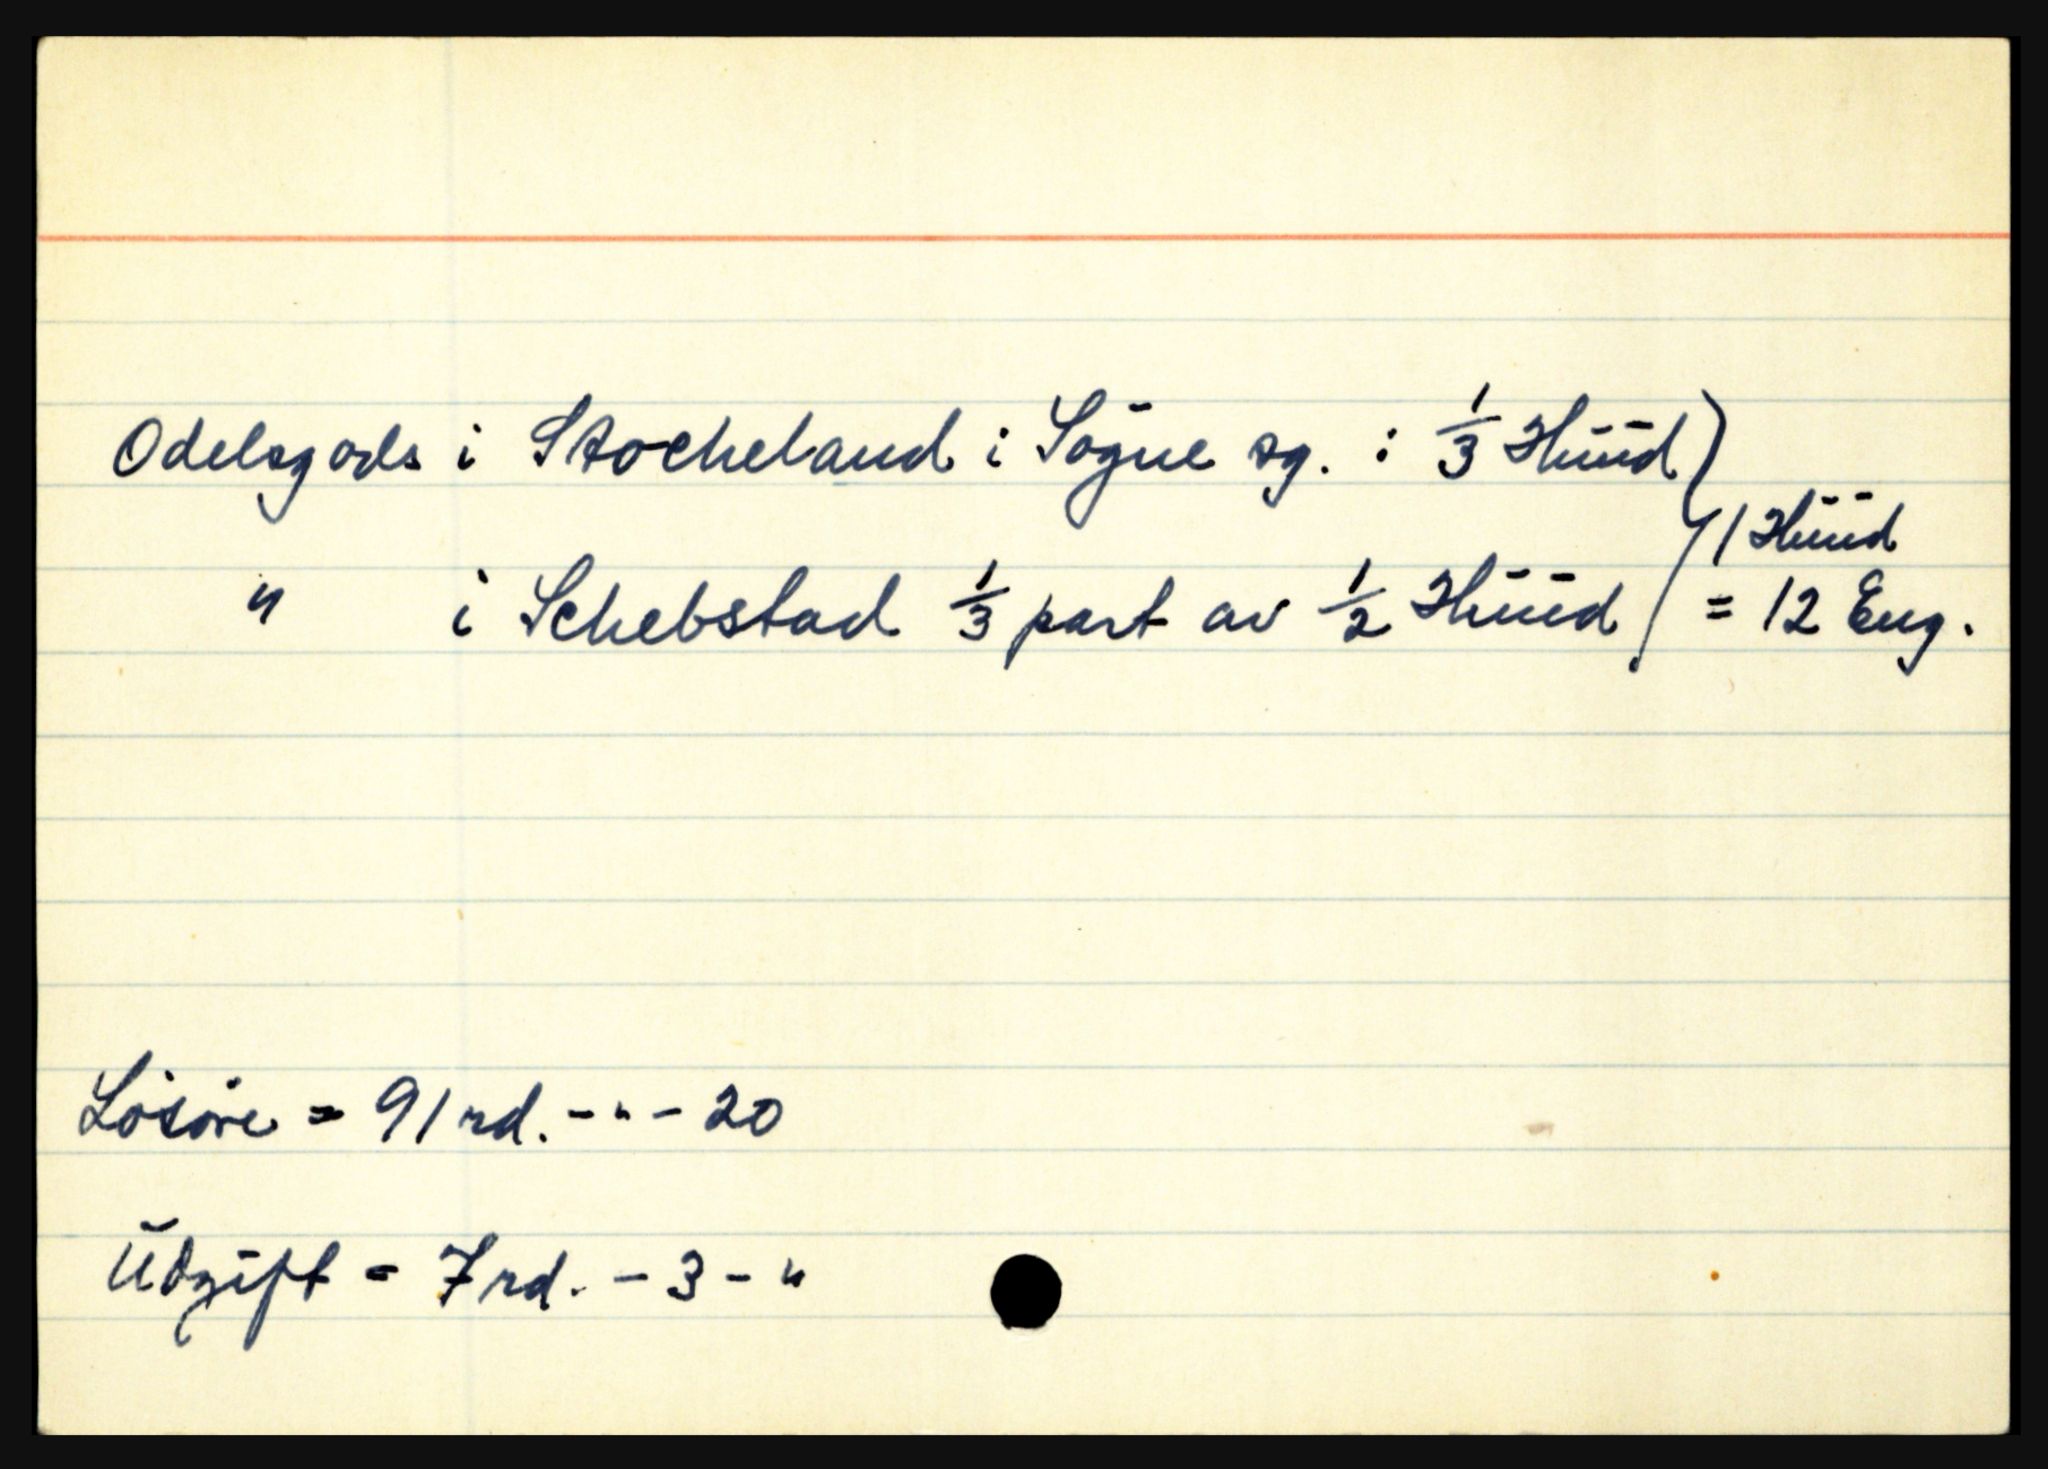 Odelsgods i Stocheland i Søgne sg. : 1/3 Huud
1 Huud
" i Schebstad 1/3 part av 1/2 Huud = 12 Eng.
Løsøre = 91 rd. - " - 20
Udgift = 7 rd. - 3 - "